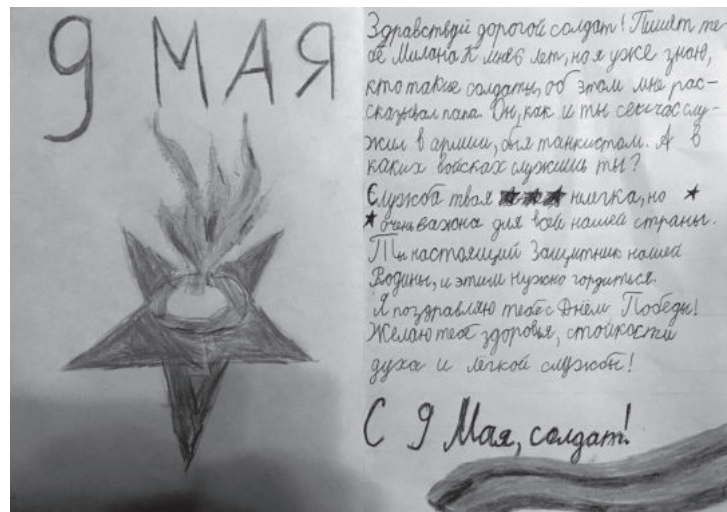 9 МАЯ
Здравствуй дорогой солдат! Пишет те-
бе Милана К мне 6 лет, но я уже знаю,
кто такие солдаты, об этом мне рас-
сказывал папа. Он, как и ты сейчас слу-
жил в армии, был танкистом. А в
каких войсках служишь ты?
Служба твоя нелегка, но
очень важна для всей нашей страны.
Ты настоящий Защитник нашей
Родины, и этим нужно гордиться.
Я поздравляю тебя с Днём Победы!
Желаю тебе здоровья, стойкости
духа и легкой службы!
С 9 Мая, солдат!